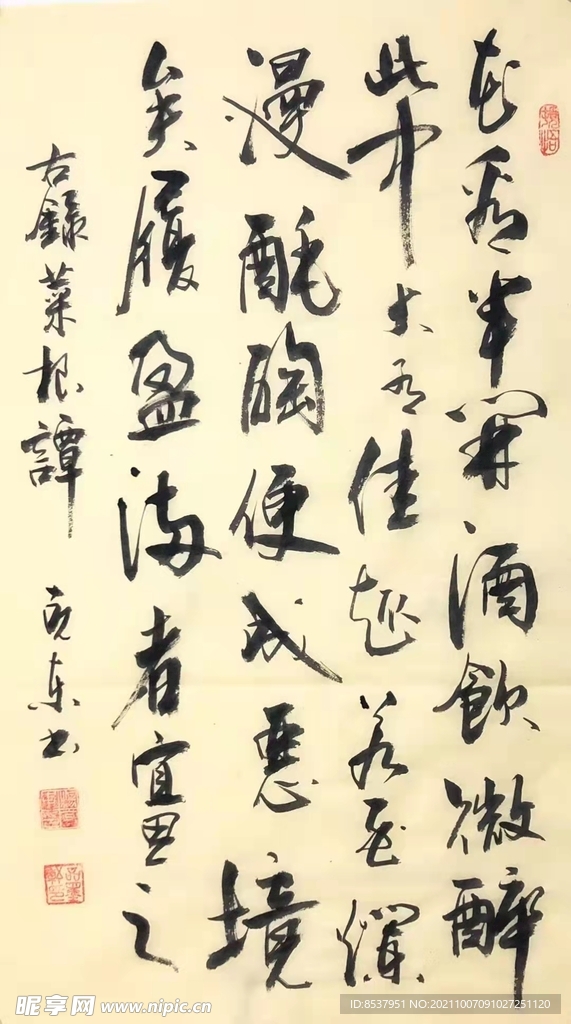 花看半開酒飲微醉
此中大有佳趣若至爛
漫酕醄便成惡境
矣履盈滿者宜思之
右錄菜根譚 東书
昵享网 www.nipic.cn
ID:8537951 NO:20211007091027251120